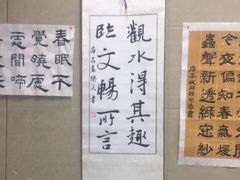 春眠不
覺曉處
處聞啼
觀水得其趣
臨文暢所言
今夜偏知春氣
蟲聲新透綠窗紗